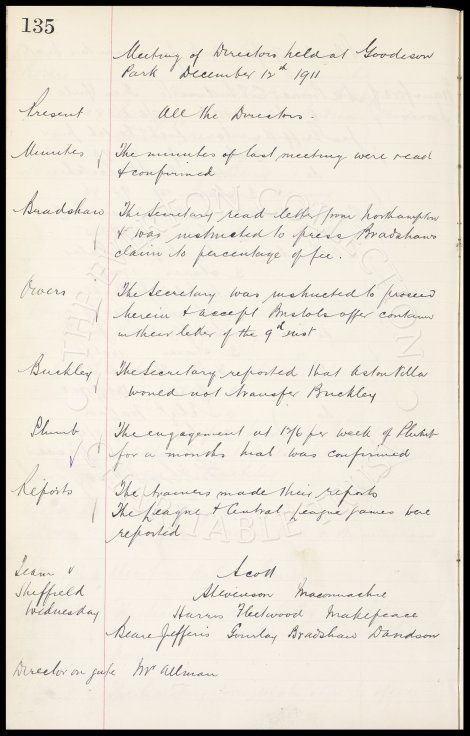 135
Meeting of Directors held at Goodison
Park December 12th 1911
Present All the Directors.
Minutes The minutes of last meeting were read
& confirmed
Bradshaw The Secretary read letter from Northampton
& was instructed to press Bradshaws
claim to percentage of fee.
Owers The Secretary was instructed to proceed
herein & accept Bristols offer contained
in their letter of the 9th inst
Buckley The Secretary reported that Aston Villa
would not transfer Buckley
Plumb The engagement at per week of
for a months trial was confirmed
Reports The trainers made their reports
The League & Central League games were
reported
Team v Scott
Sheffield Stevenson Maconnachie
Wednesday Harris Fleetwood Makepeace
Beare Jefferis Gourlay Bradshaw Davidson
Director on gate Mr Allman